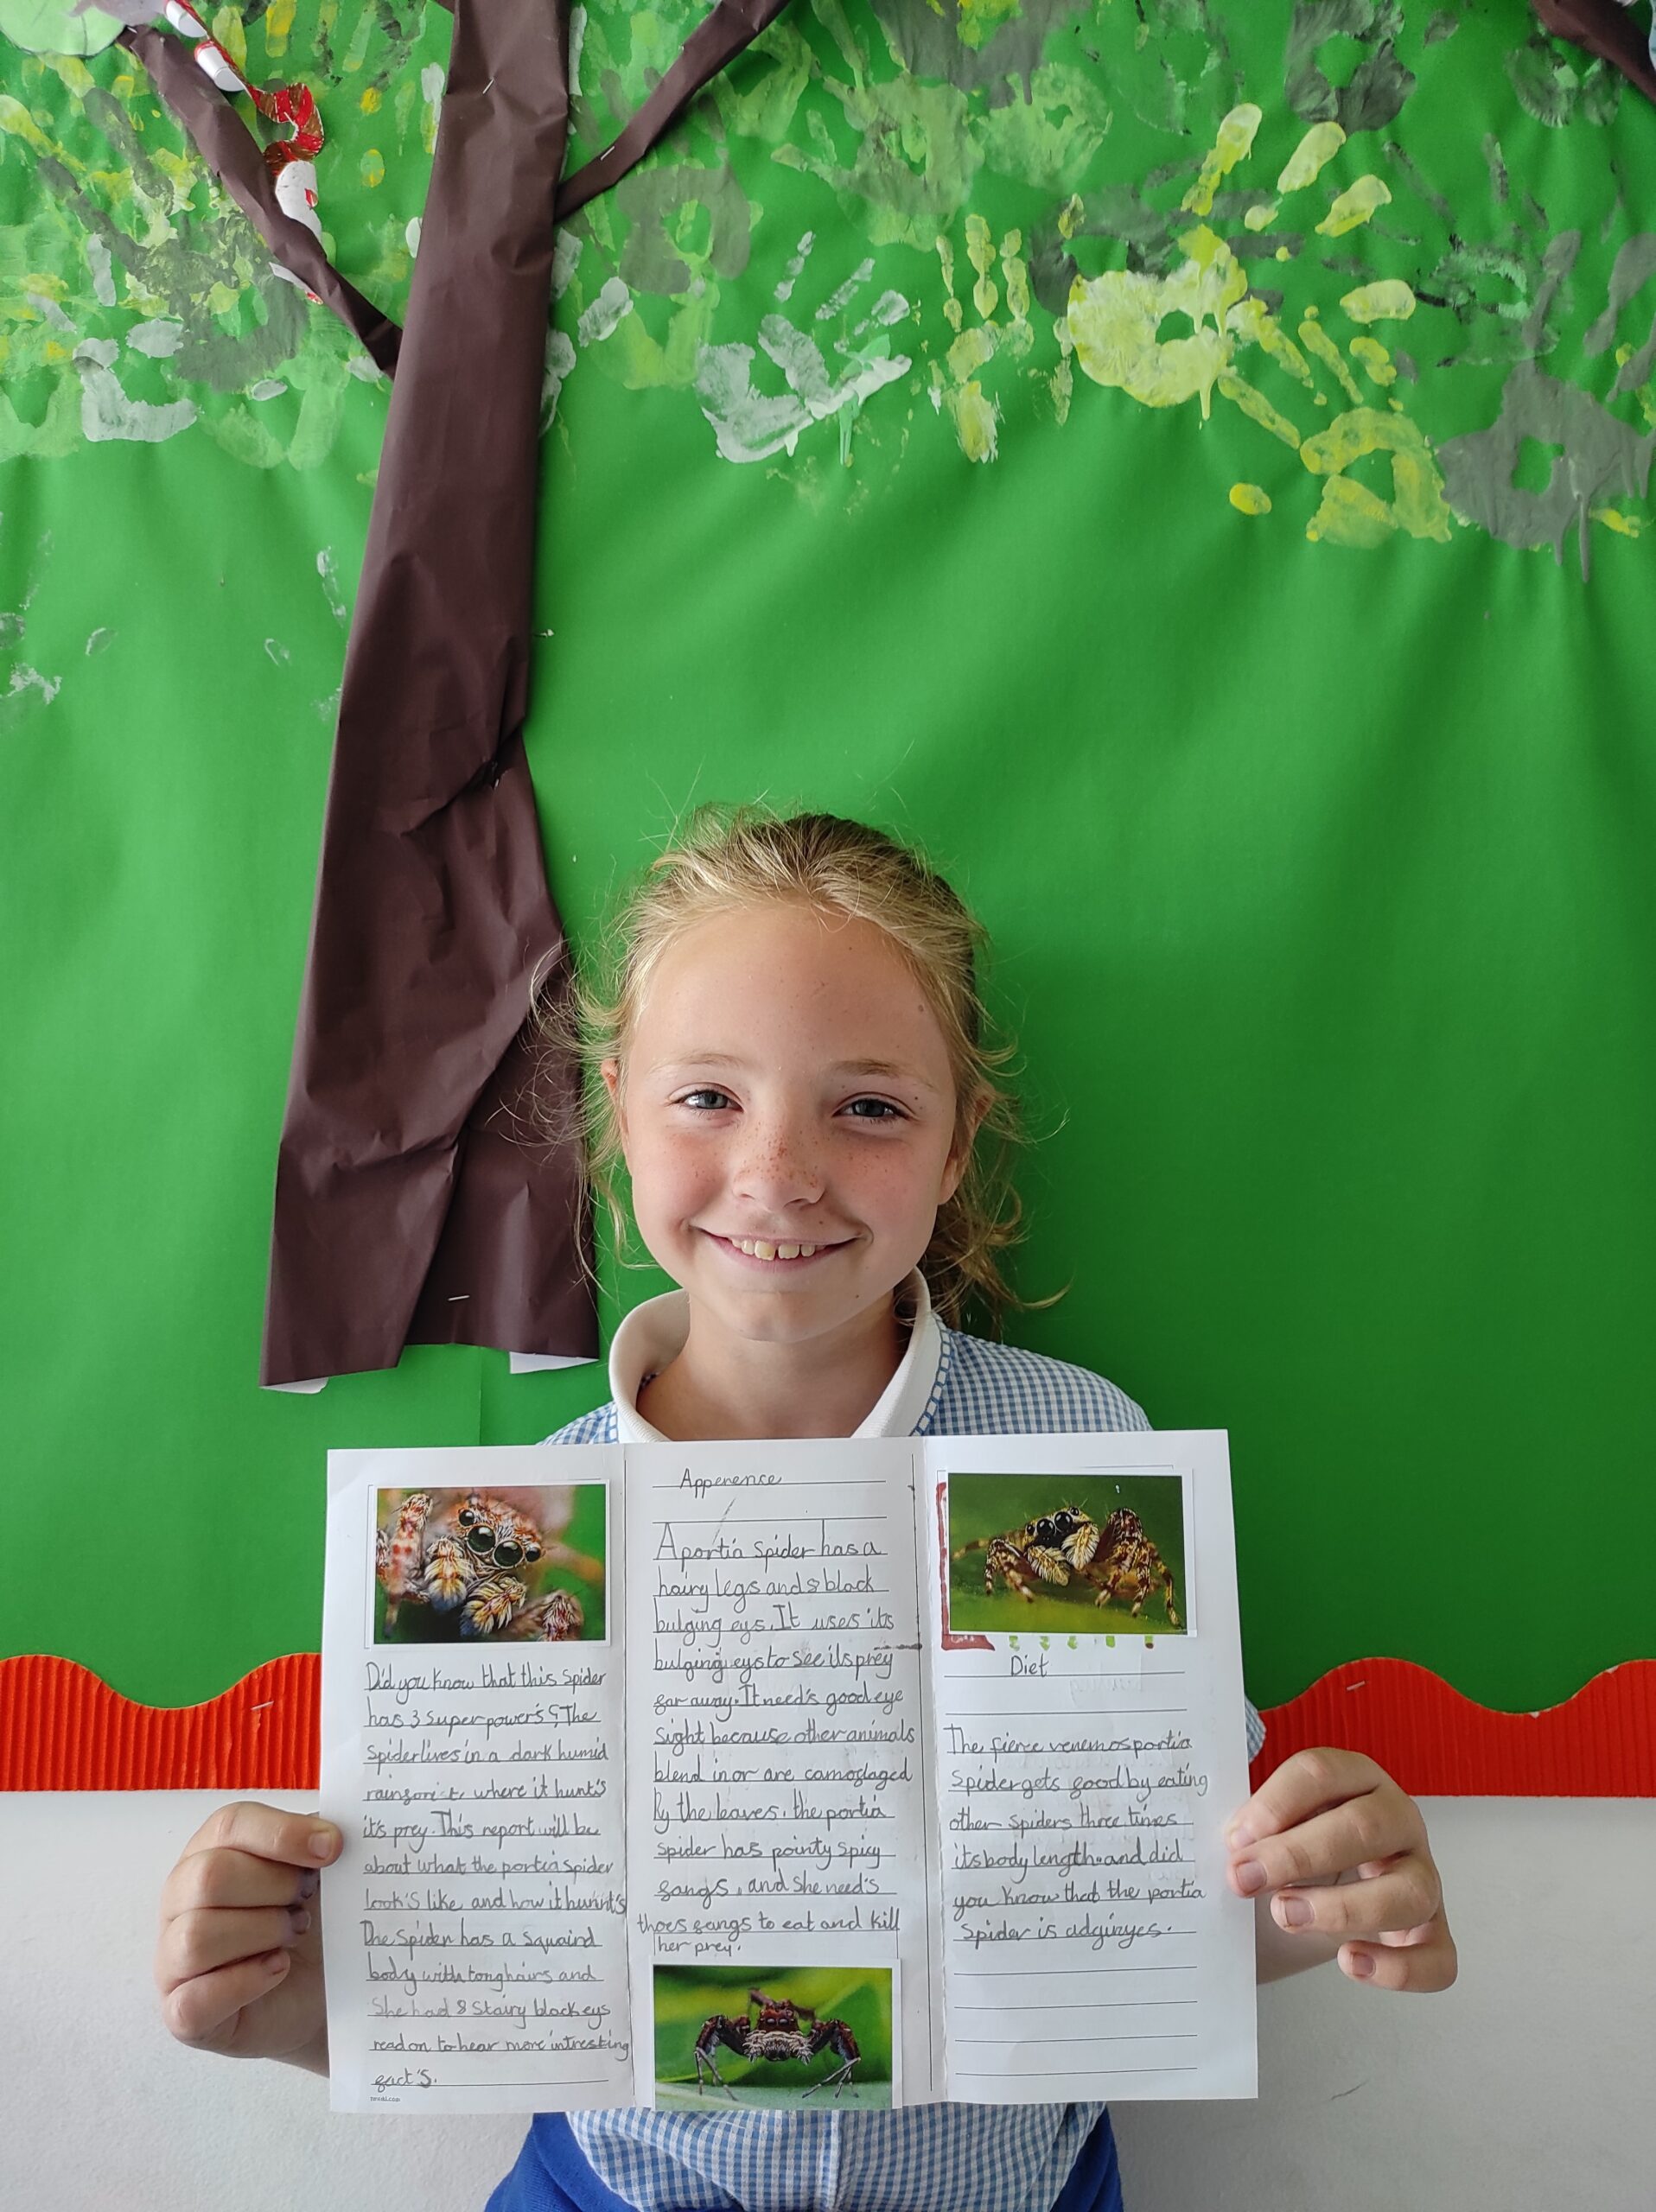 Did you know that this spider
has 3 super power's? The
Spider lives in a dark humid
where it hunt's
it's prey. This report will be
about what the portia spider
look's like and how it hurnt's
The Spider has a squaird
body with long hairs and
She had 8 Stairy black eys
read on to hear more intresting
fact's.
Apperence
A portia Spider has a
hairy legs and 8 black
bulging eys. It uses its
bulging eys to See its prey
far away. It need's good eye
Sight because other animals
blend in or are camoflaged
By the leaves. the portia
spider has pointy spicy
fangs, and She need's
thoes fangs to eat and kill
her prey.
Diet
The fierce venemos portia
Spider gets good by eating
other Spiders three times
its body length. and did
you know that the portia
Spider is